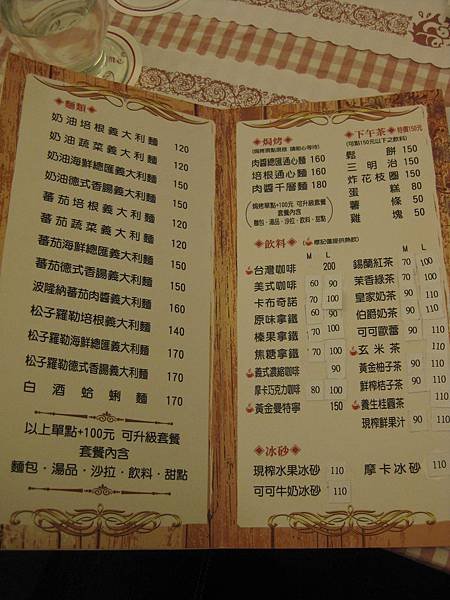 麵類
奶油培根義大利麵 120
奶油蔬菜義大利麵 120
奶油海鮮總匯義大利麵 150
奶油德式香腸義大利麵 150
蕃茄培根義大利麵 120
蕃茄蔬菜義大利麵 120
蕃茄海鮮總匯義大利麵 150
蕃茄德式香腸義大利麵 150
波隆納蕃茄肉醬義大利麵 160
松子羅勒培根義大利麵 140
松子羅勒海鮮總匯義大利麵 170
松子羅勒德式香腸義大利麵 170
白酒蛤蜊麵 170
以上單點+100元 可升級套餐
套餐內含
麵包·湯品·沙拉·飲料·甜點
焗烤
肉醬總匯通心麵 160
培根通心麵 160
肉醬千層麵 180
焗烤單點+100元 可升級套餐
套餐內含
麵包·湯品·沙拉·飲料·甜點
下午茶 特價150元
(可點150元以下之飲料)
鬆餅 150
三明治 150
炸花枝圈 150
蛋糕 80
薯條 50
雞塊 50
飲料 (標記僅提供熱飲)
M L
台灣咖啡 200
美式咖啡 60 90
卡布奇諾 70 100
原味拿鐵 60 90
榛果拿鐵 70 100
焦糖拿鐵 70 100
義式濃縮咖啡 90
摩卡巧克力咖啡 80 100
黃金曼特寧 150
M L
錫蘭紅茶 70 100
茉香綠茶 70 100
皇家奶茶 90 110
伯爵奶茶 90 110
可可歐蕾 90 110
玄米茶 110
黃金柚子茶 90 110
鮮榨桔子茶 90 110
養生桂圓茶 110
現榨鮮果汁 90 110
冰砂
現榨水果冰砂 110
可可牛奶冰砂 110
摩卡冰砂 110